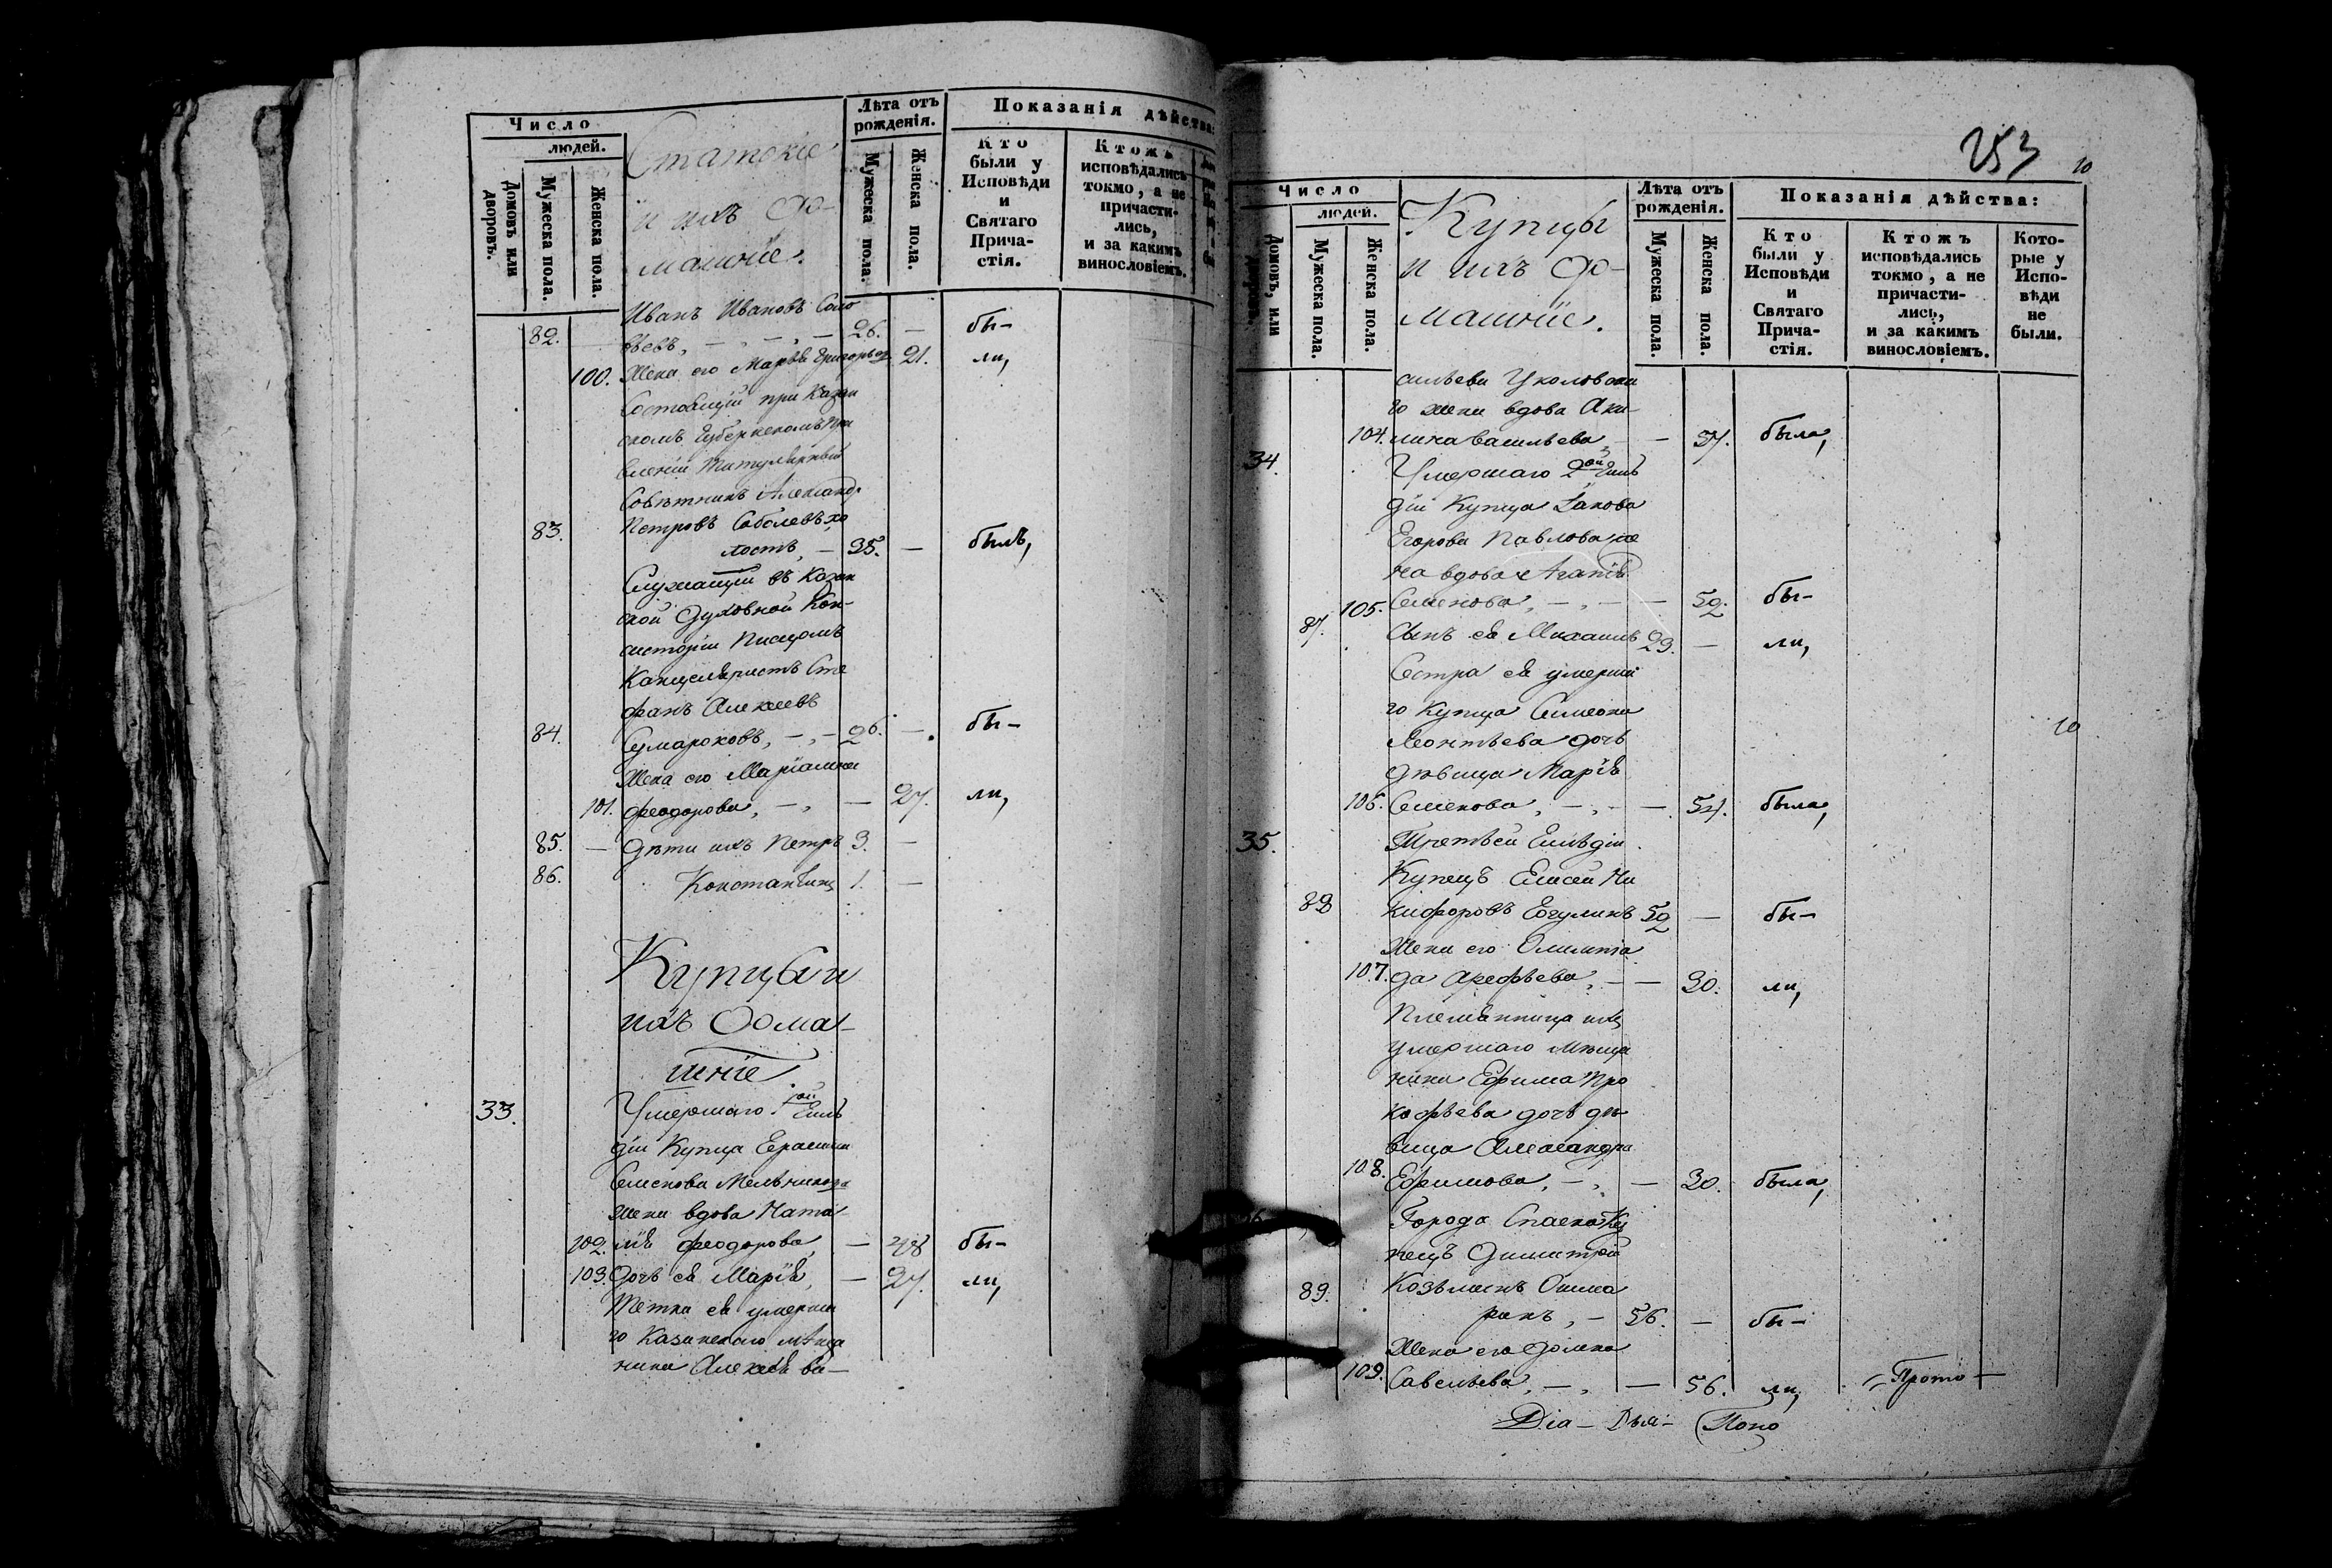 Число
людей.
Домовъ или дворовъ.
Мужеска пола.
Женска пола.
Статские
и ихъ до-
машніе.
Лѣта отъ рожденія.
Мужеска пола.
Женска пола.
Показанія дѣйства:
Кто были у Исповѣди и Святаго Прича- стія.
Ктожъ исповѣдались токмо, а не причасти- лись, и за какимъ винословіемъ.
Иванъ Ивановъ Соло
82. вьевъ, — 26. — бы-
100. Жена его Марѳа Григорьева 21. ли,
Состоящій при Казан
скомъ Губернскомъ Пра
вленіи Титулярный
Совѣтникъ Александр
83. Петровъ Соболевъ хо
лостъ, — 35. — былъ,
Служащій въ Казан
ской Духовной Кон-
систоріи Писцомъ
Канцеляристъ Сте
фанъ Алексеевъ
84. Сумароковъ, — 26. — бы-
Жена его Маріамна
101. Феодорова, — — 27. ли,
85. — Дѣти ихъ Петръ 3. —
86. Константинъ 1. —
Купцы и
ихъ Дома-
шніе.
33. Умершаго 1ой Гиль
діи Купца Герасима
Семенова Мельникова
жена вдова Ната-
102. лія Феодорова — 48 бы-
103. Дочь ея Марія, — 27. ли,
Тетка ея умерша
го Казанскаго мѣща
нина Алексѣя Ва-
253
10
Число
людей.
Домовъ, или дворовъ.
Мужеска пола.
Женска пола.
Купцы
и ихъ до-
машніе.
Лѣта отъ рожденія.
Мужеска пола.
Женска пола.
Показанія дѣйства:
Кто были у Исповѣди и Святаго Прича- стія.
Ктожъ исповѣдались токмо, а не причасти- лись, и за какимъ винословіемъ.
Кото- рые у Испо- вѣди не были.
сильева
го жена вдова Аки-
104. лина Васильева, — — 57. была,
34. Умершаго 2ой Гиль
діи Купца Іакова
Егорова Павлова же
на вдова Агапія
105. Семенова, — — 52. бы-
87. Сынъ ея Михаилъ 29. — ли,
Сестра ея умерша
го Купца Симеона
Леонтьева дочь
дѣвица Марія
106. Семенова, — — 54. была,
35. Третьей Гильдіи
Купецъ Елисей Ни
88 кифоровъ 52 — бы-
Жена его Олимпіа
107. да Арефьева, — — 30. ли,
Племянница ихъ
умершаго мѣща
нина Ефима Про
кофьева дочь дѣ
вица Александра
108. Ефимова, — — 30. была,
Города Спаска Ку
пецъ Димитрій
89. Козьминъ
— 56. — бы-
Жена его Домна
109. Савельева, — — 56. ли,
10
Прото —
Діа — Дья — Попо